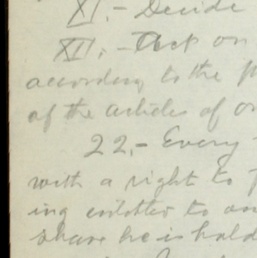 XI.- Decide
XII.- Act on
according to the
of the articles of
22.- Every
with a right to
ing entitles to
share he is hold